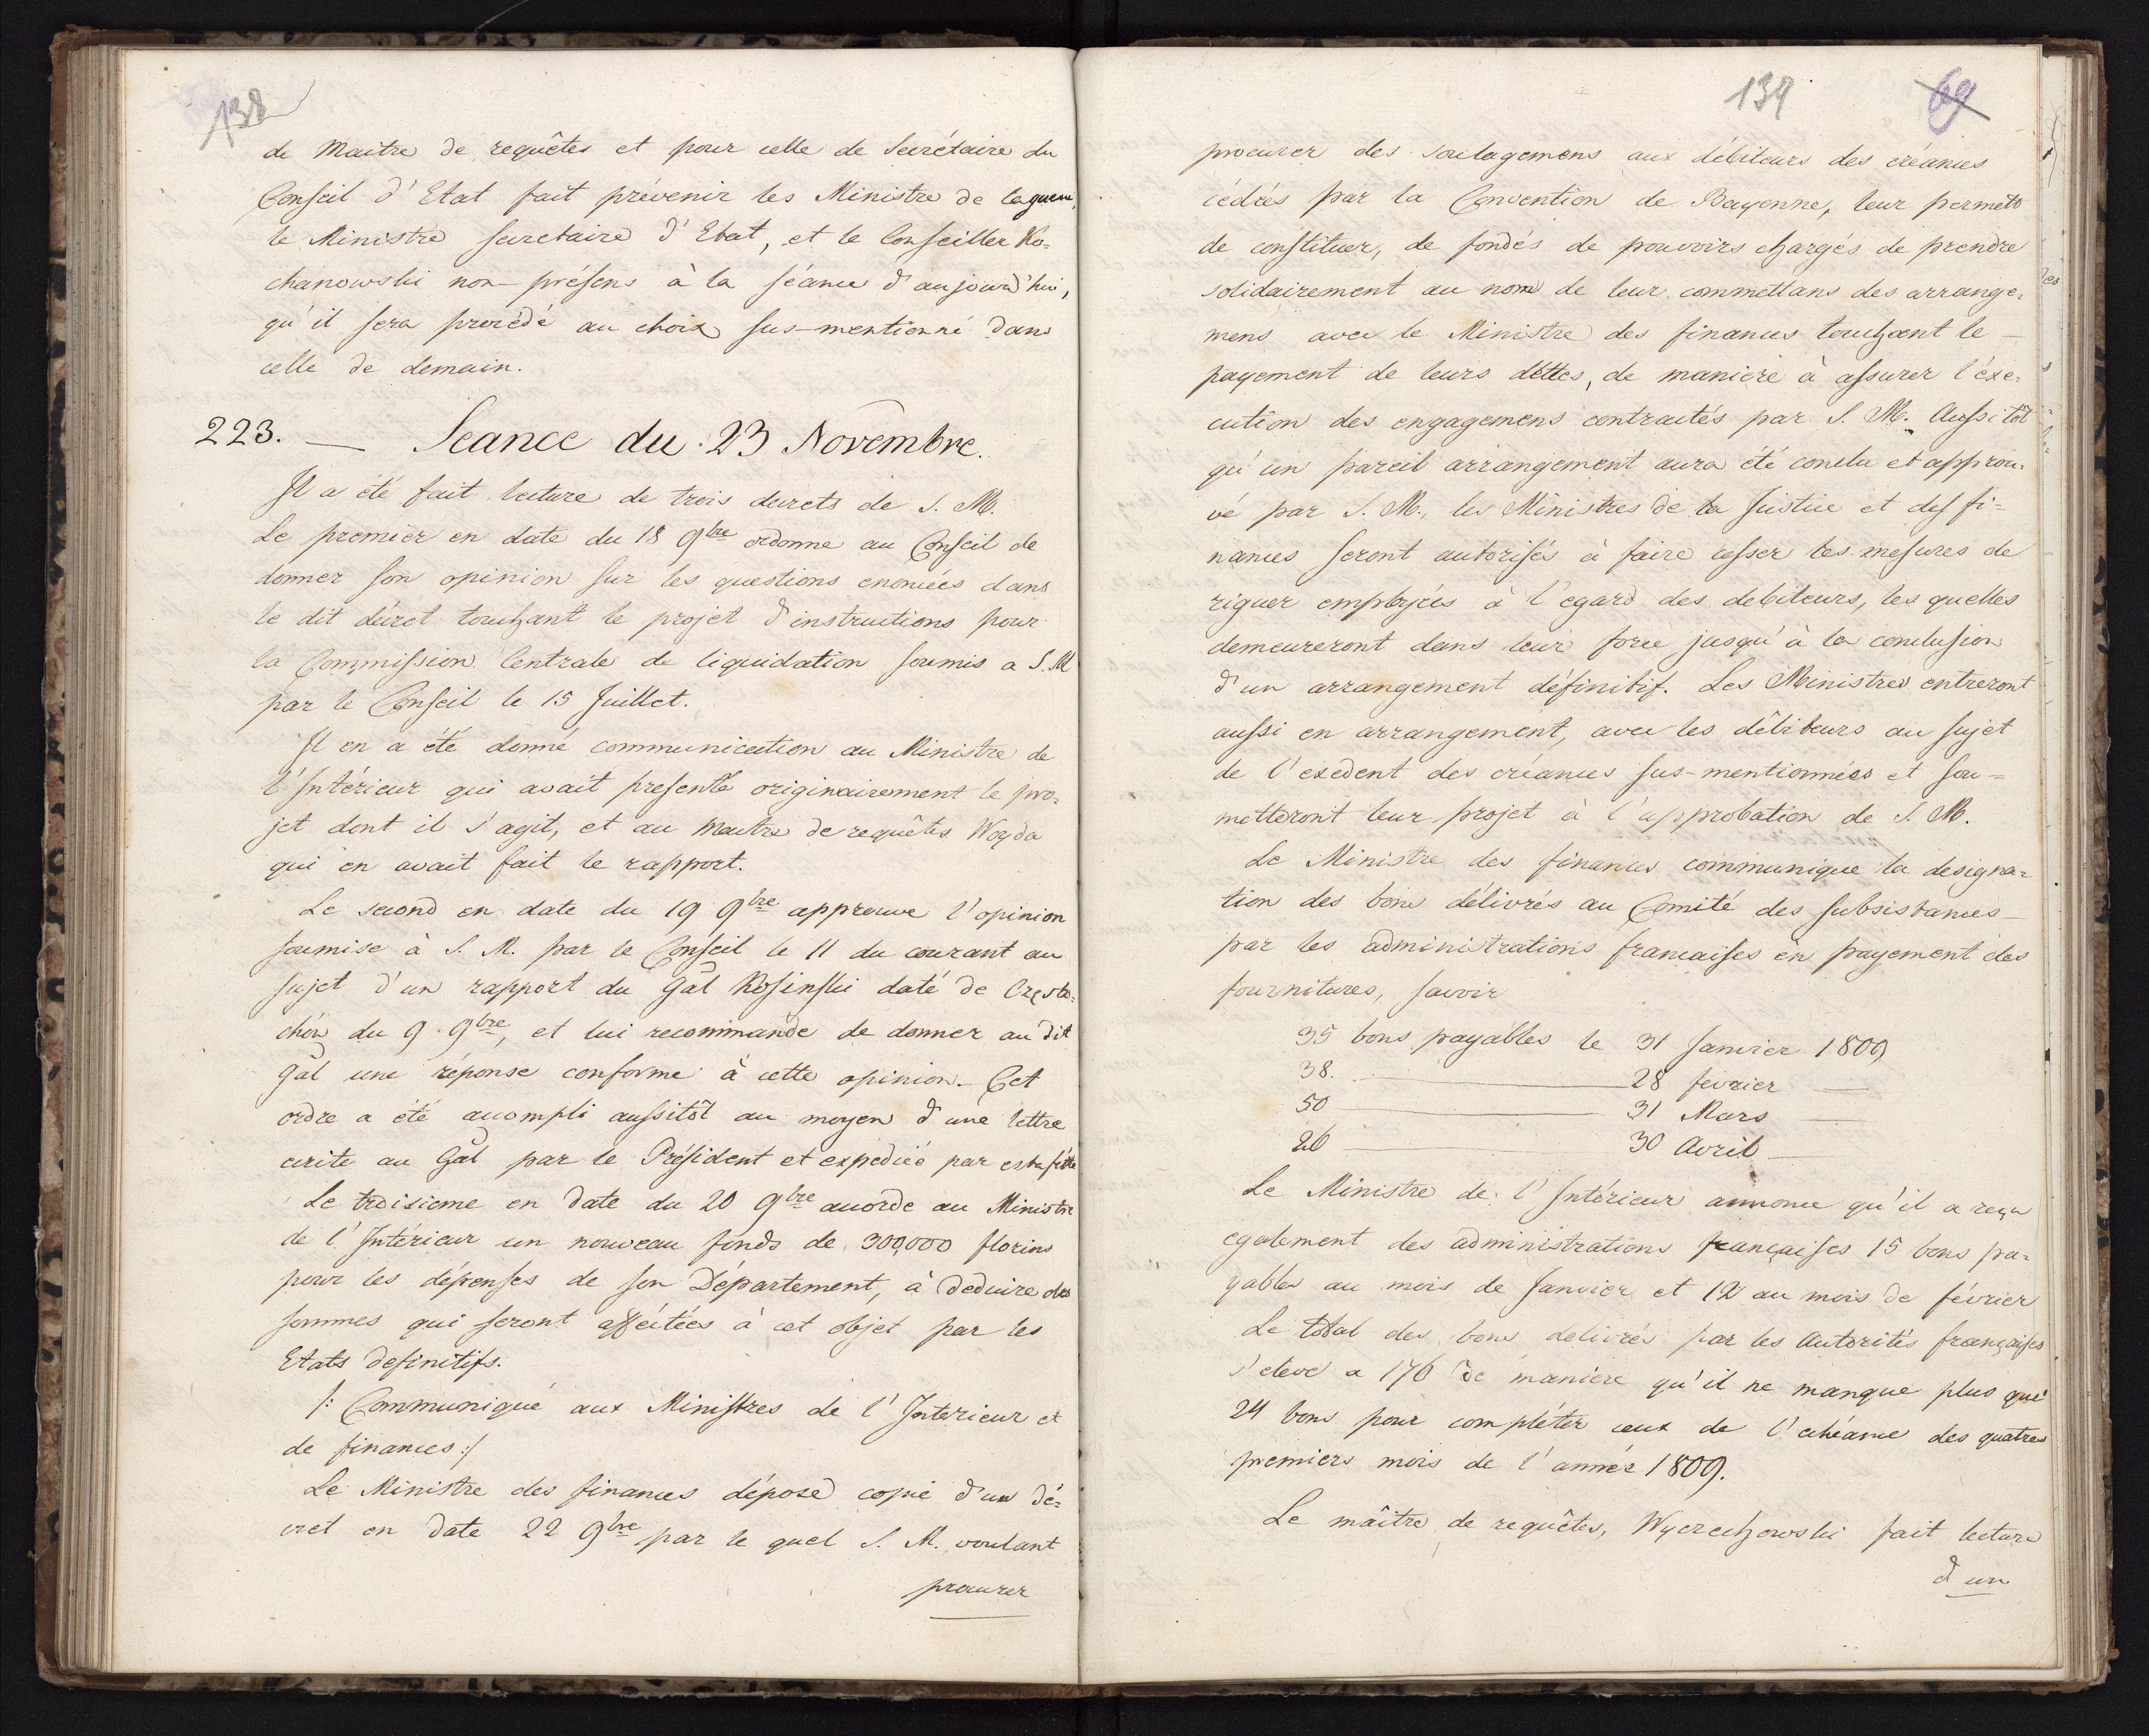 138
de Maitre de requêtes et pour celle de Secrétaire du
Conseil d'Etat fait prévenir les Ministre de la guerre,
le Ministre secretaire d'Etat, et le Conseiller Ko=
chanowski non-présens à la séance d'aujourd'hui,
qu'il sera procédé au choix sus-mentionné dans
celle de demain.
223. — Seance du 23 Novembre.
Il a été fait lecture de trois decrets de S. M.
Le premier en date du 18 9bre ordonne au Conseil de
donner son opinion sur les questions enoncées dans
le dit décret touchant le projet d'instructions pour
la Commission Centrale de liquidation soumis a S. M
par le Conseil le 15 Juillet.
Il en a été donné communication au Ministre de
l'Intérieur qui avait presenté originairement le pro=
jet dont il s'agit, et au Maitre de requêtes Woyda
qui en avait fait le rapport.
Le second en date du 19 9bre approuve l'opinion
soumise à S. M. par le Conseil le 11 du courant au
sujet d'un rapport du Gal Kosinski daté de Często=
chów du 9 9bre, et lui recommande de donner au dit
Gal une réponse conforme à cette opinion. — Cet
ordre a été accompli aussitôt au moyen d'une lettre
ecrite au Gal par le Président et expediée par estafétte
Le troisieme en date du 20 9bre accorde au Ministre
de l'Intérieur un nouveau fonds de 300,000 florins
pour les dépenses de son Département, à deduire des
sommes qui seront affectées à cet objet par les
Etats definitifs.
/: Communiqué aux Ministres de l'Interieur et
de finances :/
Le Ministre des finances dépose copie d'un dé=
cret en date 22 9bre par le quel S. M. voulant
procurer
139 69
procurer des soulagemens aux débiteurs des créances
cédées par la Convention de Bayonne, leur permets
de constituer, de fondés de pouvoirs chargés de prendre
solidairement au nom de leur commettans des arrange=
mens avec le Ministre des finances touchant le —
payement de leurs dettes, de maniere à assurer l'éxe=
cution des engagemens contractés par S. M. Aussitôt
qu'un pareil arrangement aura été conclu et approu=
vé par S. M., les Ministres de la Justice et des fi=
nances seront autorisés à faire cesser les mesures de
riguer employées à l'egard des debiteurs, les quelles
demeureront dans leur force jusqu'à la conclusion
d'un arrangement définitif. Les Ministres entreront
aussi en arrangement, avec les débiteurs au sujet
de l'exedent des créances sus-mentionnées et sou=
metteront leur projet à l'approbation de S. M.
Le Ministre des finances communique la designa=
tion des bons délivrés au Comité des subsistances —
par les administrations francaises en payement des
fournitures, savoir
35 bons payables le 31 Janvier 1809
38. — 28 fevrier —
50 — 31 Mars —
26 — 30 Avril —
Le Ministre de l'Intérieur annonce qu'il a reçu
egalement des administrations françaises 15 bons pa=
yables au mois de Janvier et 12 au mois de février
Le total des bons delivrés par les Autorités françaises
s'eleve a 176 de maniere qu'il ne manque plus que
24 bons pour compléter ceux de l'echéance des quatres
premiers mois de l'année 1809.
Le maître de requêtes, Wyczechowski fait lecture
d'un